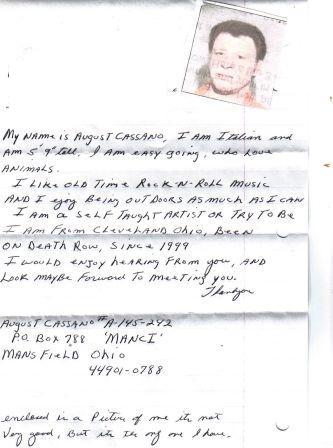 My NAME is AUGUST CASSANO, I AM ITALIAN and
AM 5' 9" tell, I AM EASY going, who LOVE
ANIMALS.
I LIKE OLD TIME ROCK-N-ROLL MUSIC
AND I ENJOY BEING OUTDOORS AS MUCH AS I CAN
I AM A SELF TAUGHT ARTIST OR TRY TO BE
I AM FROM CLEVELAND OHIO, BEEN
ON DEATH ROW, SINCE 1999
I WOULD ENJOY hEARING FROM you, AND
LOOK MAYBE FORWARD TO MEETING you.
AUGUST CASSANO #A-145-242
P.O. BOX 788 'MANCI'
MANSFIELD OHIO
44901-0788
enclosed is a Picture of me its not
Very good, But its the only one I have.